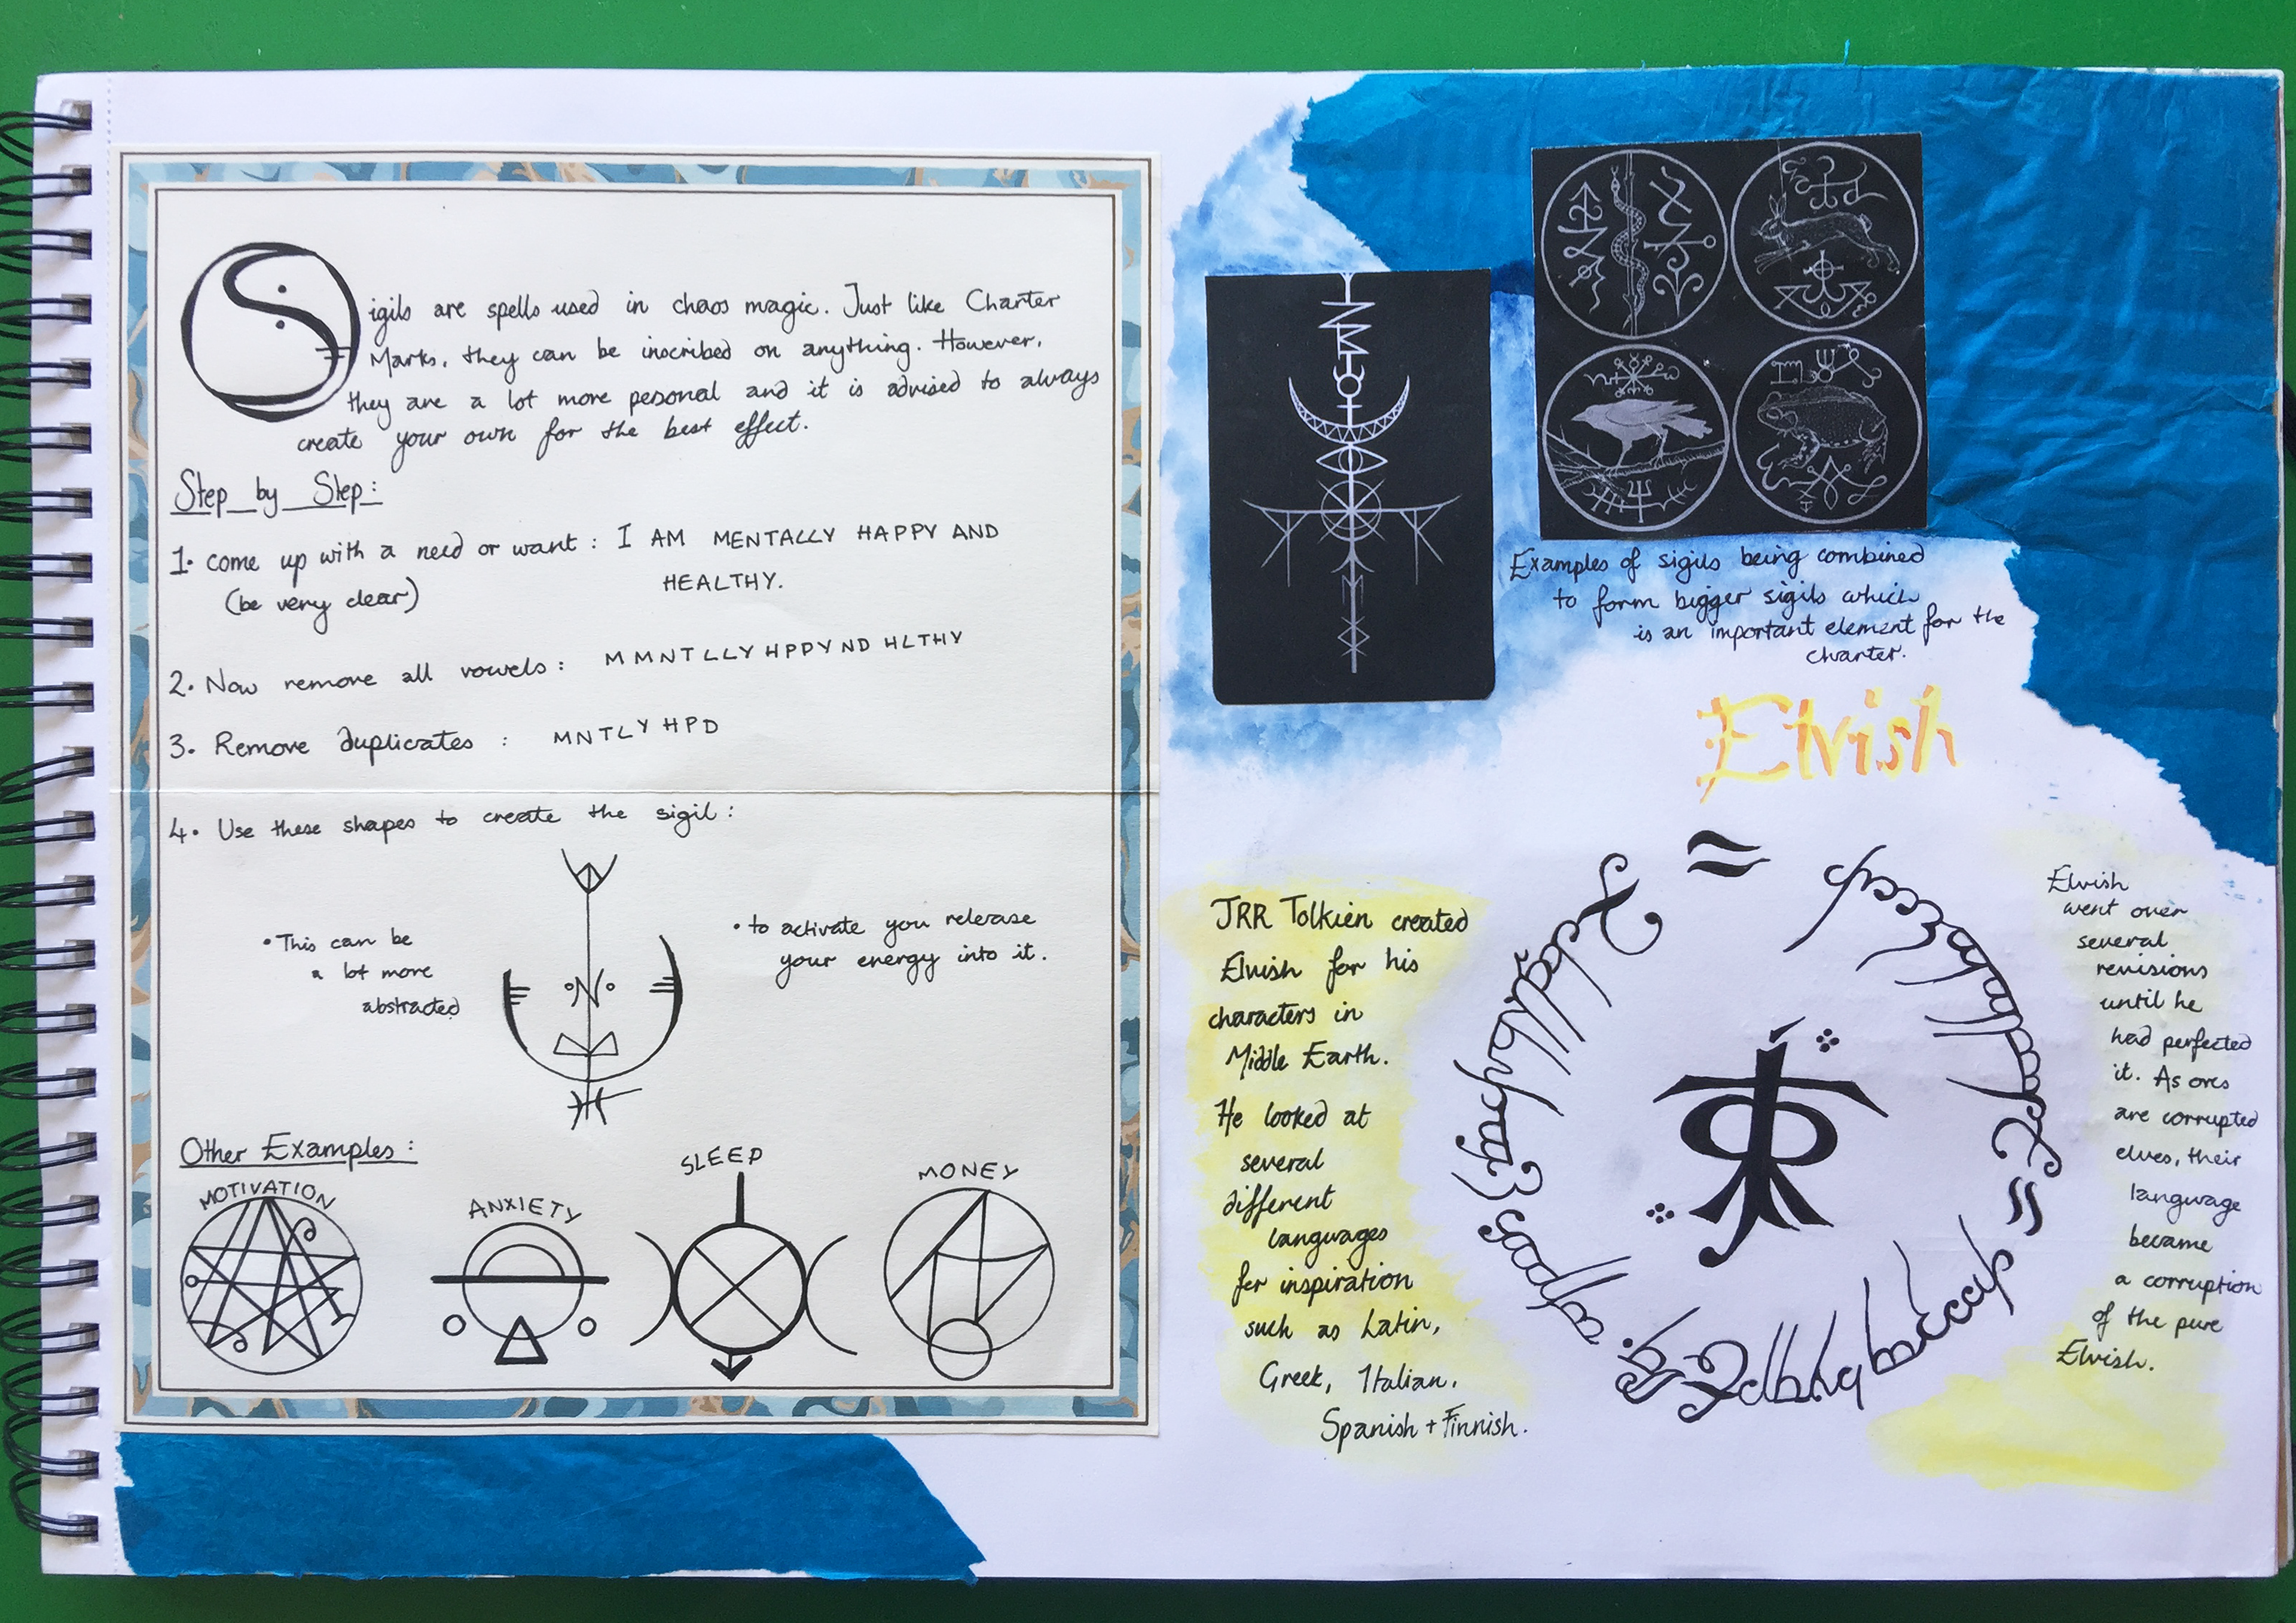 Sigils are spells used in chaos magic. Just like Charter
Marks, they can be inscribed on anything. However,
they are a lot more pesonal and it is advised to always
create your own for the best effect.
Step by Step:
1. Come up with a need or want: I AM MENTALLY HAPPY AND
(be very clear) HEALTHY.
2. Now remove all vowels: MMNTLLY HPPY ND HLTHY
3. Remove duplicates: MNTLY HPD
4. Use these shapes to create the sigil:
• This can be
a lot more
abstracted
• to activate you release
your energy into it.
Other Examples:
MOTIVATION
ANXIETY
SLEEP
MONEY
Examples of sigils being combined
to form bigger sigils which
is an important element for the
charter.
Elvish
JRR Tolkien created
Elvish for his
characters in
Middle Earth.
He looked at
several
different
languages
for inspiration
such as Latin,
Greek, Italian,
Spanish + Finnish.
Elvish
went over
several
revisions
until he
had perfected
it. As orcs
are corrupted
elves, their
language
became
a corruption
of the pure
Elvish.